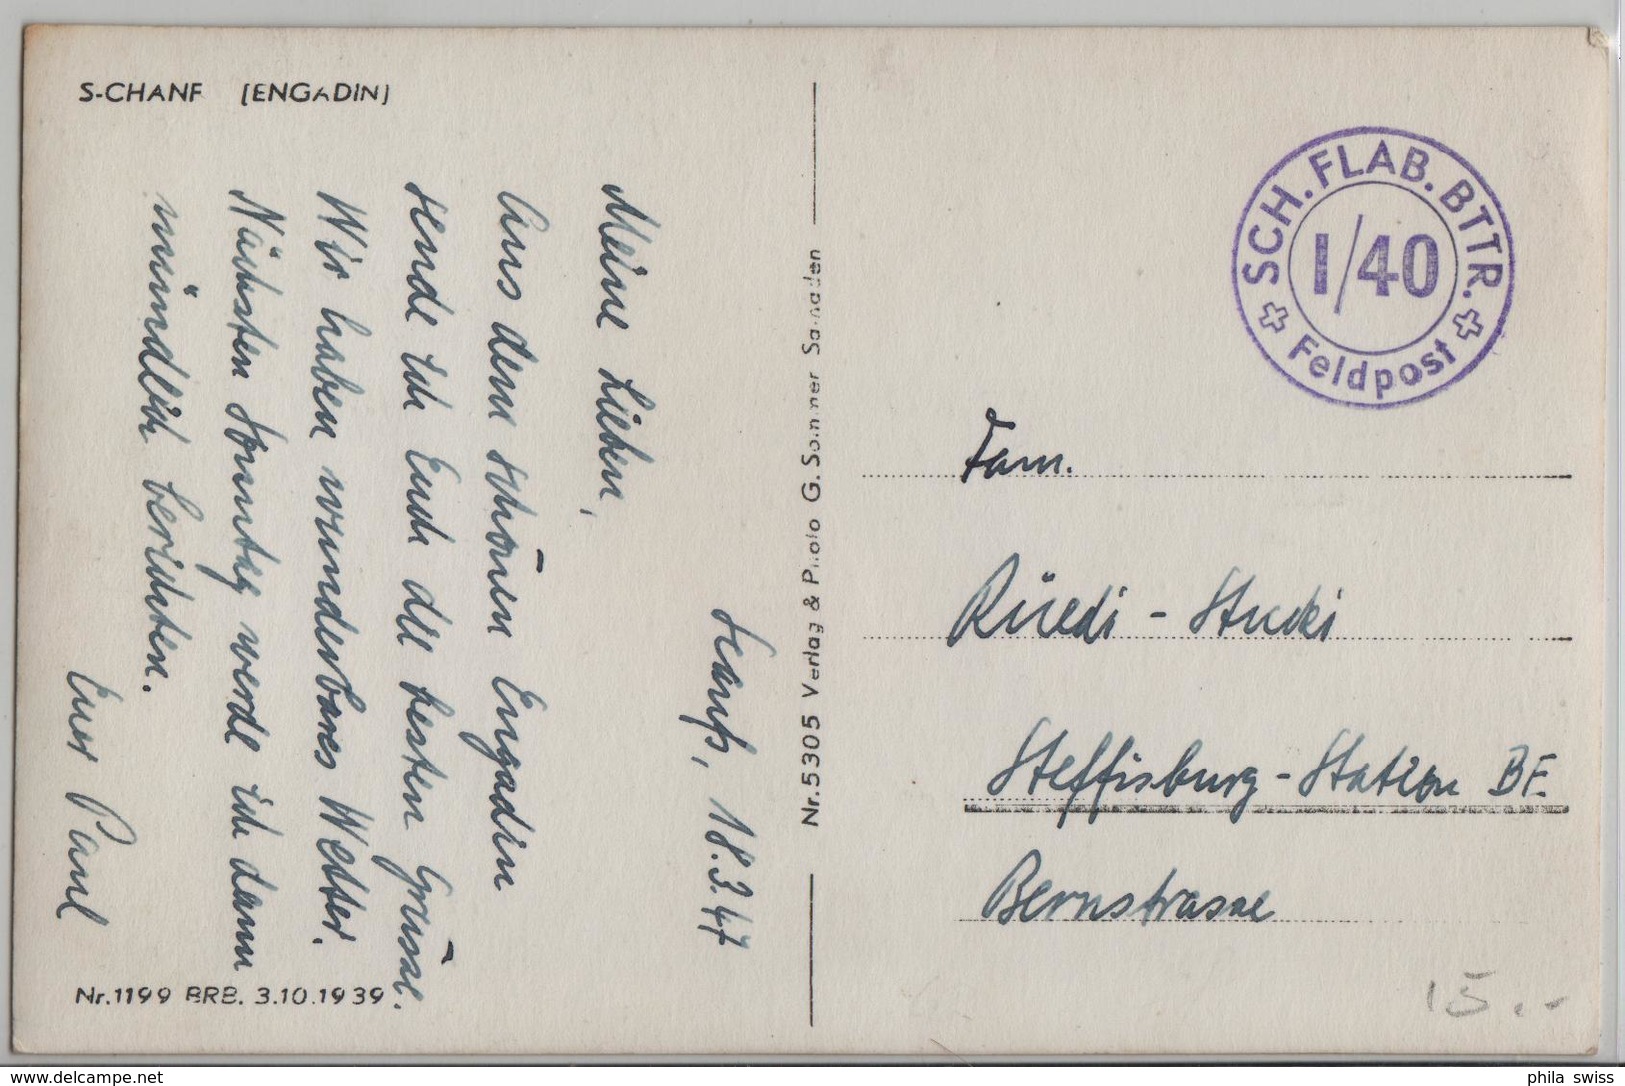 S-CHANF (ENGADIN)
Scanfs, 18.3.47
Meine Lieben,
Aus dem schönen Engadin
sende ich Euch die besten Grüsse.
Wir haben wunderbares Wetter.
Nächsten Sonntag werde ich dann
mündlich berichten.
Euer Paul
Nr.1199 BRB. 3.10.1939
Nr. 5305 Verlag & Photo G. Sommer Samaden
SCH. FLAB. BTTR.
I/40
Feldpost
Fam.
Rüedi - Stucki
Steffisburg-Station BE.
Bernstrasse
15.-
www.delcampe.net
phila_swiss